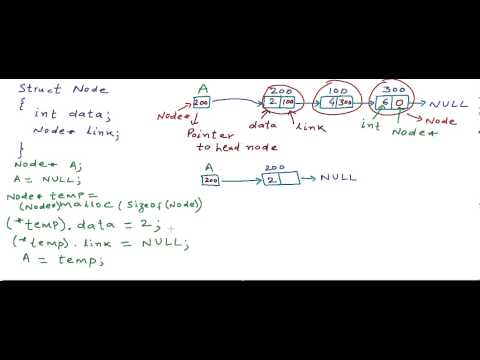 Struct Node
{
int data;
Node* link;
}
Node* A;
A = NULL;
Node* temp =
(Node*)malloc(sizeof(Node))
(*temp).data = 2;
(*temp).link = NULL;
A = temp;
A 200 100 300
200 2 100 4 300 6 0 NULL
Node* data link int Node* Node
Pointer
to head node
A 200
200 2 NULL